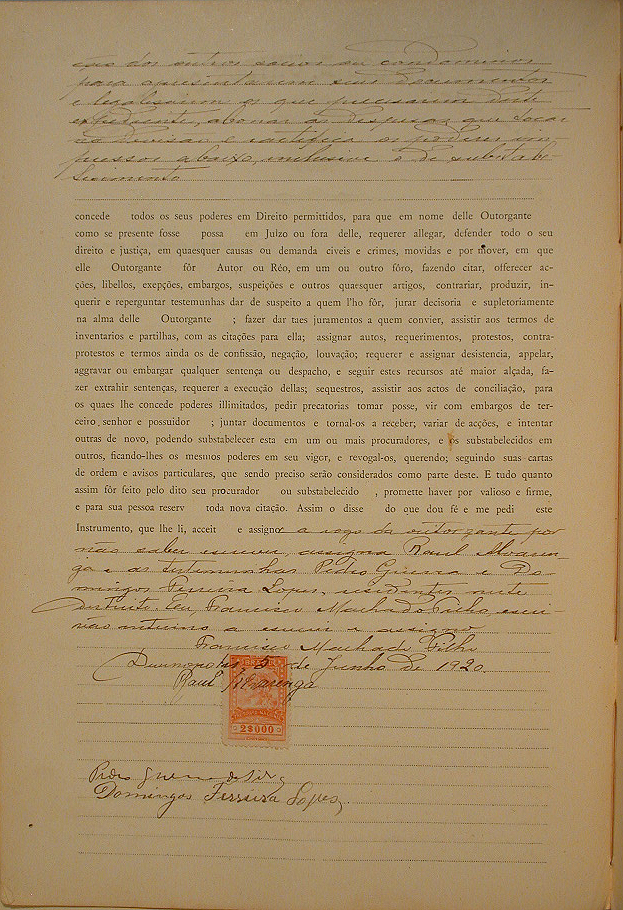 ção dos outros socios ou condominos
para apresentarem seus documentos
e legalisarem os que precisarem deste
expediente, abonar as despesas que tocar
na divisão e ractifica os poderes im-
pressos abaixo, inclusive o de substabe-
lecimento
concede todos os seus poderes em Direito permittidos, para que em nome delle Outorgante
como se presente fosse possa em Juizo ou fora delle, requerer allegar, defender todo o seu
direito e justiça, em quaesquer causas ou demanda civeis e crimes, movidas e por mover, em que
elle Outorgante fôr Autor ou Réo, em um ou outro fôro, fazendo citar, offerecer ac-
ções, libellos, exepções, embargos, suspeições e outros quaesquer artigos, contrariar, produzir, in-
querir e reperguntar testemunhas dar de suspeito a quem l'ho fôr, jurar decisoria e supletoriamente
na alma delle Outorgante ; fazer dar taes juramentos a quem convier, assistir aos termos de
inventarios e partilhas, com as citações para ella; assignar autos, requerimentos, protestos, contra-
protestos e termos ainda os de confissão, negação, louvação; requerer e assignar desistencia, appelar,
aggravar ou embargar qualquer sentença ou despacho, e seguir estes recursos até maior alçada, fa-
zer extrahir sentenças, requerer a execução dellas; sequestros, assistir aos actos de conciliação, para
os quaes lhe concede poderes illimitados, pedir precatorias tomar posse, vir com embargos de ter-
ceiro senhor e possuidor ; juntar documentos e tornal-os a receber; variar de acções, e intentar
outras de novo, podendo substabelecer esta em um ou mais procuradores, e os substabelecidos em
outros, ficando-lhes os mesmos poderes em seu vigor, e revogal-os, querendo; seguindo suas cartas
de ordem e avisos particulares, que sendo preciso serão considerados como parte deste. E tudo quanto
assim fôr feito pelo dito seu procurador ou substabelecido , promette haver por valioso e firme,
e para sua pessoa reserv toda nova citação. Assim o disse do que dou fé e me pedi este
Instrumento, que lhe li, acceit e assigno a rogo da outorgante por
não saber escrever, assigna Raul Alvaren-
ga e as testemunhas Pedro Guerra e Do-
mingos Ferreira Lopes, residentes neste
districto. Eu, Francisco Machado Filho, escri-
vão interino a escrevi e assigno
Francisco Machado Filho
5 de Junho de 1920.
Raul Alvarenga
BRASIL
2$000
Pedro Guerra da Silva
Domingos Ferreira Lopes